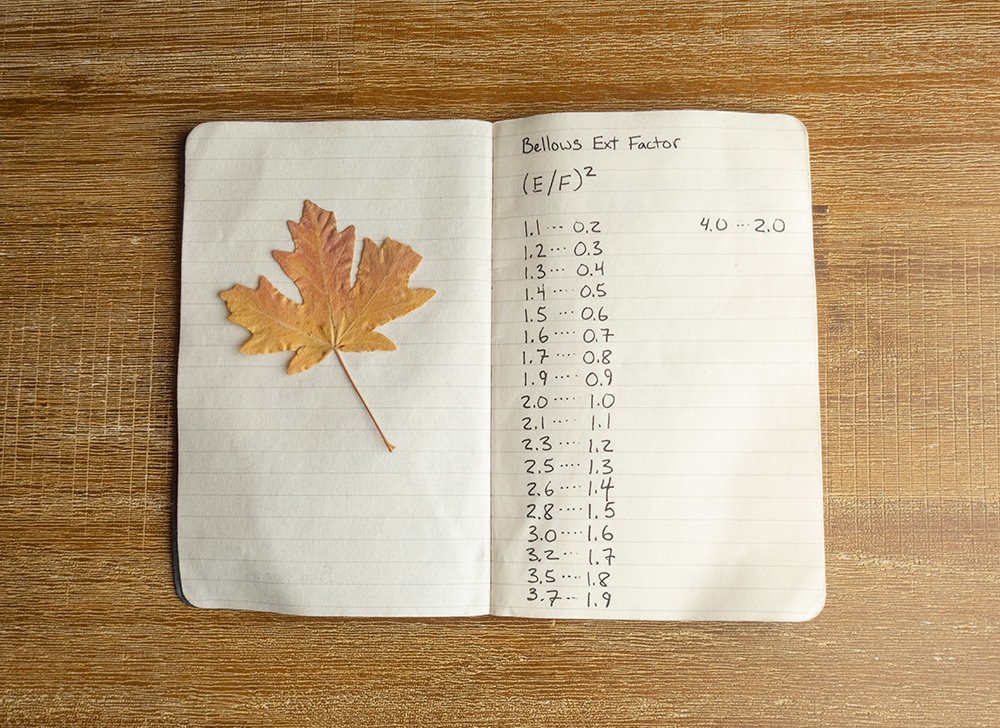 Bellows Ext Factor
(E/F)²
1.1 ... 0.2
1.2 ... 0.3
1.3 ... 0.4
1.4 .... 0.5
1.5 ... 0.6
1.6 .... 0.7
1.7 .... 0.8
1.9 .... 0.9
2.0 .... 1.0
2.1 .... 1.1
2.3 .... 1.2
2.5 .... 1.3
2.6 .... 1.4
2.8 .... 1.5
3.0 .... 1.6
3.2 ... 1.7
3.5 .... 1.8
3.7 .. 1.9
4.0 ... 2.0